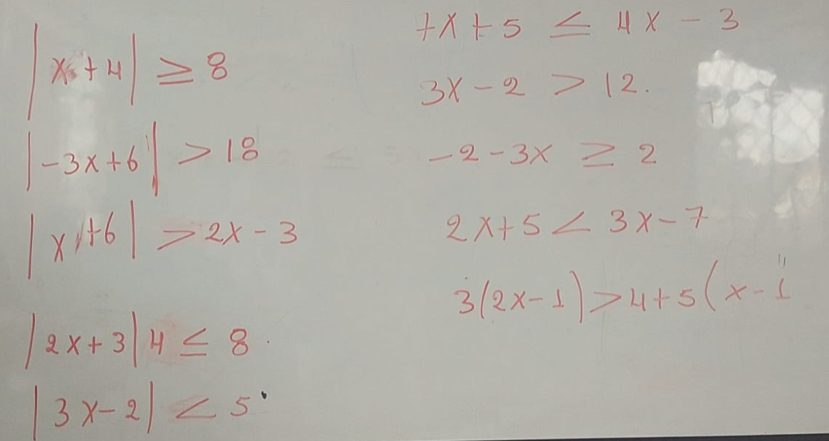 |x+4| ≥ 8
|-3x+6| > 18
|x+6| > 2x-3
|2x+3|4 ≤ 8
|3x-2| < 5
7x+5 ≤ 4x-3
3x-2 > 12.
-2-3x ≥ 2
2x+5 < 3x-7
3(2x-1) > 4+5(x-1